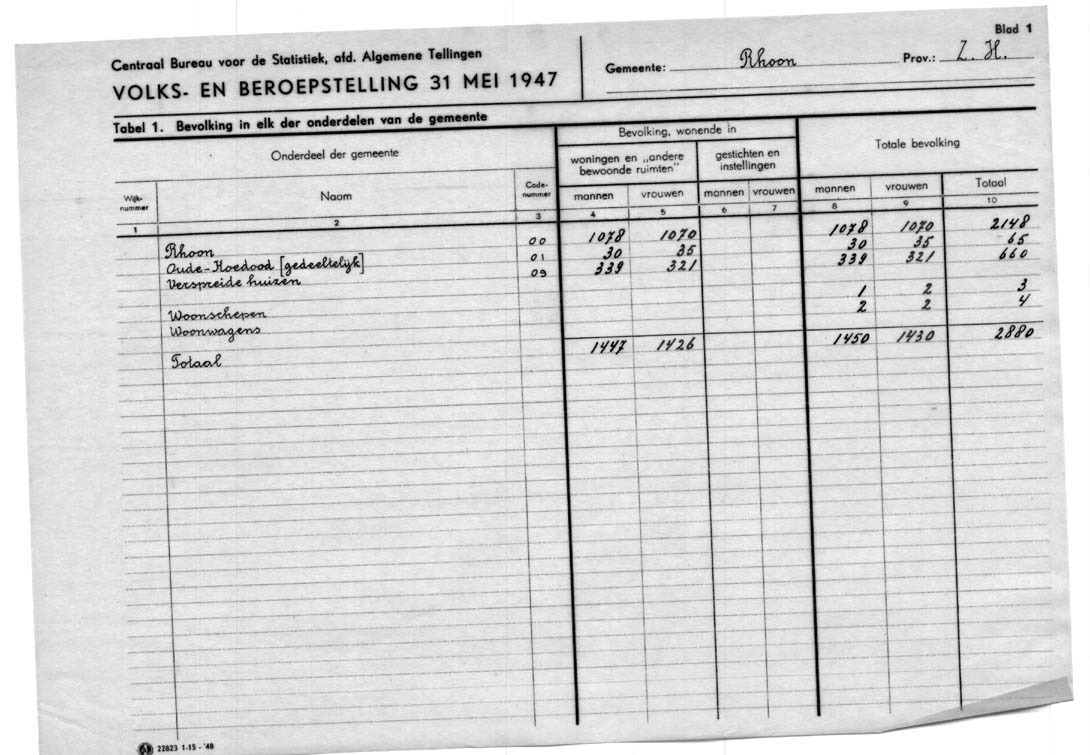 Blad 1
Centraal Bureau voor de Statistiek, afd. Algemene Tellingen
VOLKS- EN BEROEPSTELLING 31 MEI 1947
Gemeente: Rhoon Prov.: Z. H.
Tabel 1. Bevolking in elk der onderdelen van de gemeente
Onderdeel der gemeente Bevolking, wonende in Totale bevolking
woningen en „andere bewoonde ruimten" gestichten en instellingen
Wijk-nummer Naam Code-nummer mannen vrouwen mannen vrouwen mannen vrouwen Totaal
1 2 3 4 5 6 7 8 9 10
Rhoon 00 1078 1070 1078 1070 2148
Oude-Koedood [gedeeltelijk] 01 30 35 30 35 65
Verspreide huizen 09 339 321 339 321 660
Woonschepen 1 2 3
Woonwagens 2 2 4
Totaal 1447 1426 1450 1430 2880
22823 1-15 - '48